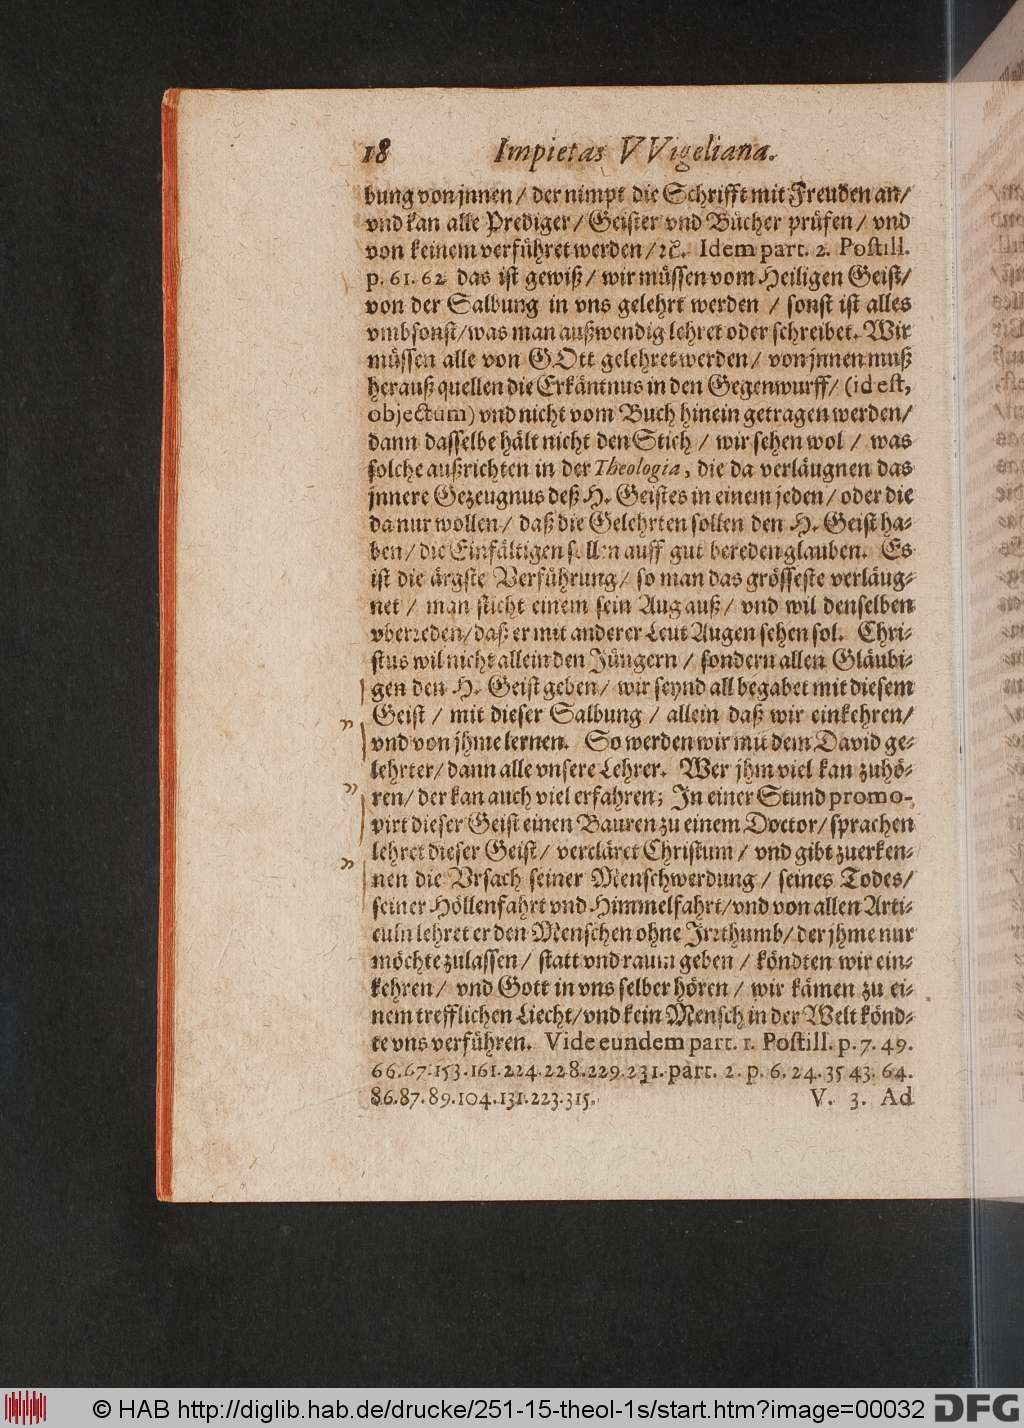 18 Impietas VVigeliana.
bung von jnnen / der nimpt die Schrifft mit Freuden an/
vnd kan alle Prediger / Geister vnd Bücher prüfen / vnd
von keinem verführet werden / ꝛc. Idem part. 2. Postill.
p. 61. 62 das ist gewiß / wir müssen vom Heiligen Geist/
von der Salbung in vns gelehrt werden / sonst ist alles
vmbsonst/was man außwendig lehret oder schreibet. Wir
müssen alle von GOtt gelehret werden/ von jnnen muß
herauß quellen die Erkäntnus in den Gegenwurff/ (id est,
objectum) vnd nicht vom Buch hinein getragen werden/
dann dasselbe hält nicht den Stich / wir sehen wol / was
solche außrichten in der Theologia, die da verläugnen das
jnnere Gezeugnus deß H. Geistes in einem jeden/ oder die
da nur wollen/ daß die Gelehrten sollen den H. Geist ha-
ben/ die Einfältigen sollen auff gut bereden glauben. Es
ist die ärgste Verführung/ so man das grösseste verläug-
net / man sticht einem sein Aug auß/ vnd wil denselben
vberreden/daß er mit anderer Leut Augen sehen sol. Chri-
stus wil nicht allein den Jüngern / sondern allen Gläubi-
gen den H. Geist geben/ wir seynd all begabet mit diesem
Geist / mit dieser Salbung / allein daß wir einkehren/
vnd von jhme lernen. So werden wir mit dem David ge-
lehrter/ dann alle vnsere Lehrer. Wer jhm viel kan zuhö-
ren/ der kan auch viel erfahren; In einer Stund promo-
virt dieser Geist einen Bauren zu einem Doctor/ sprachen
lehret dieser Geist/ verkläret Christum / vnd gibt zuerken-
nen die Vrsach seiner Menschwerdung / seines Todes/
seiner Höllenfahrt vnd Himmelfahrt/vnd von allen Arti-
culn lehret er den Menschen ohne Irrthumb/ der jhme nur
möchte zulassen/ statt vnd raum geben / köndten wir ein-
kehren/ vnd Gott in vns selber hören / wir kämen zu ei-
nem trefflichen Liecht/vnd kein Mensch in der Welt könd-
te vns verführen. Vide eundem part. 1. Postill. p. 7. 49.
66. 67. 153. 161. 224. 228. 229. 231. part. 2. p. 6. 24. 35 43. 64.
86. 87. 89. 104. 131. 223. 315. V. 3. Ad
© HAB http://diglib.hab.de/drucke/251-15-theol-1s/start.htm?image=00032 DFG